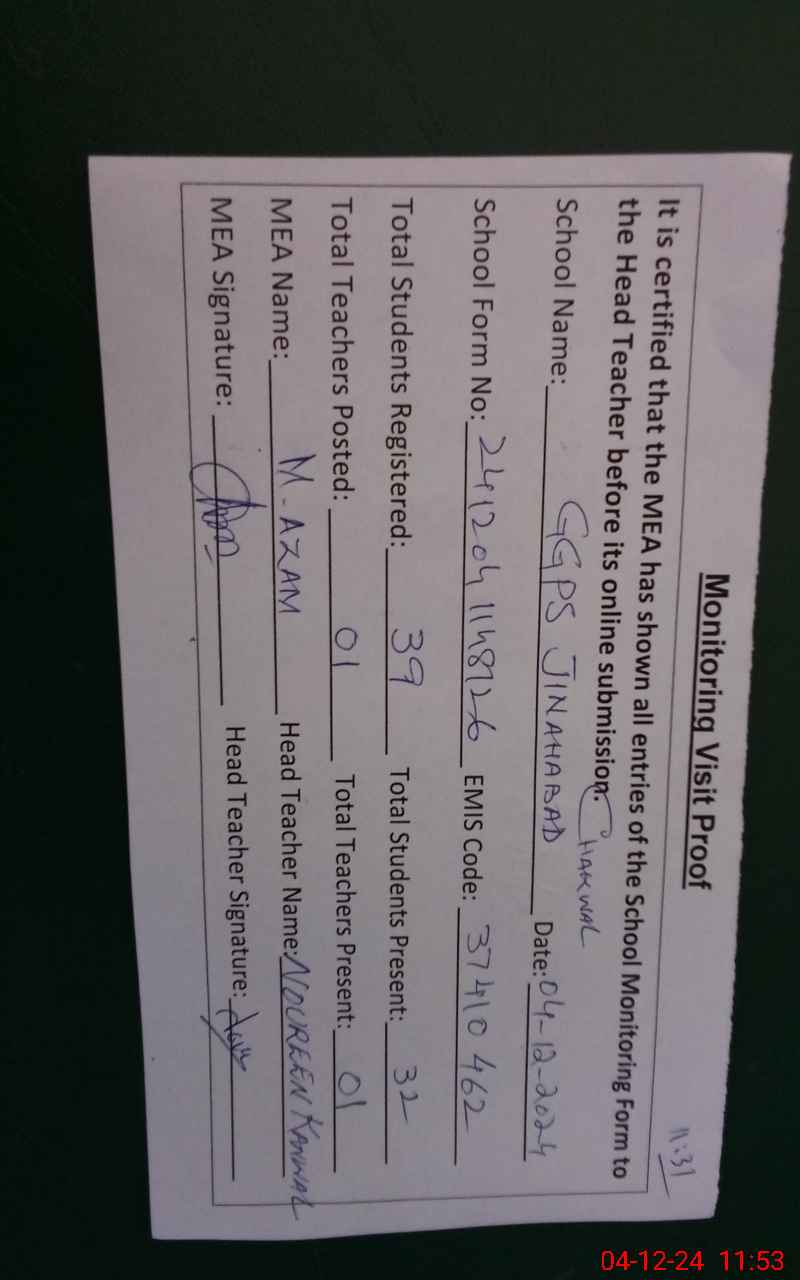 11:31
Monitoring Visit Proof
It is certified that the MEA has shown all entries of the School Monitoring Form to
the Head Teacher before its online submission.
CHAKWAL
School Name: GGPS JINAHABAD Date: 04-12-2024
School Form No: 241204 1148126 EMIS Code: 37410462
Total Students Registered: 39 Total Students Present: 32
Total Teachers Posted: 01 Total Teachers Present: 01
MEA Name: M-AZAM Head Teacher Name: NOUREEN KANWAL
MEA Signature: Head Teacher Signature:
04-12-24 11:53